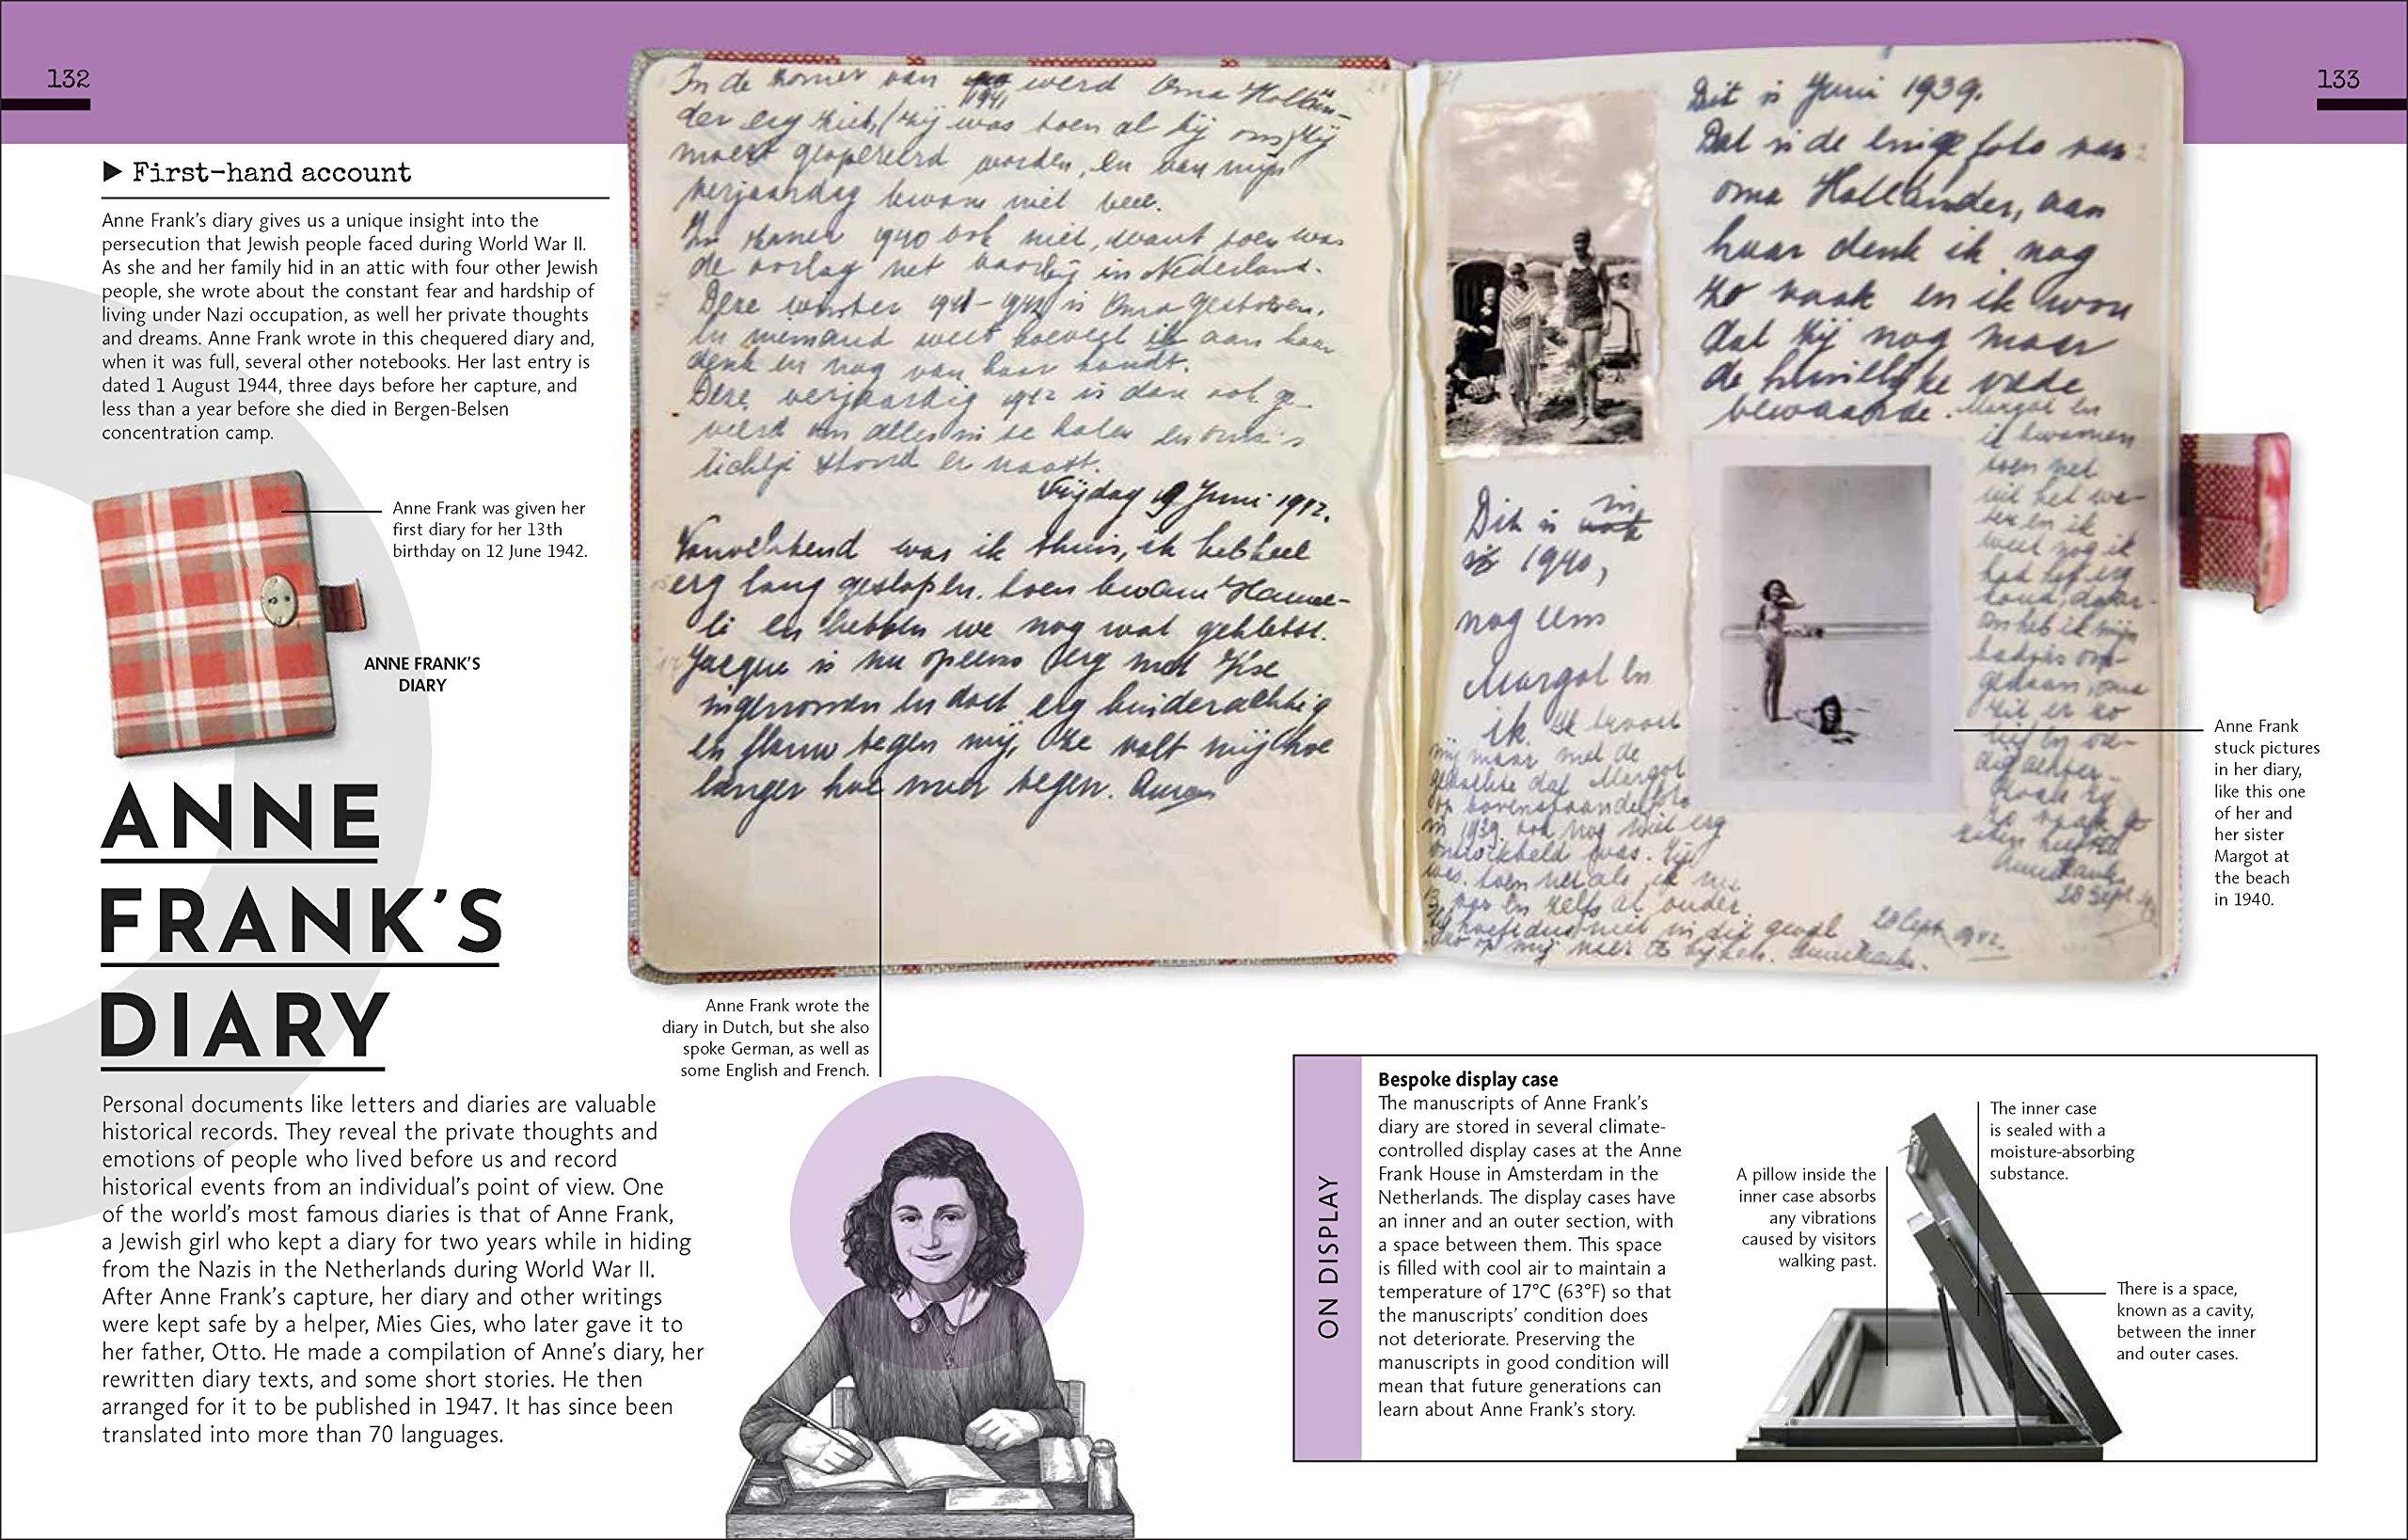 132
133
▶ First-hand account
Anne Frank’s diary gives us a unique insight into the
persecution that Jewish people faced during World War II.
As she and her family hid in an attic with four other Jewish
people, she wrote about the constant fear and hardship of
living under Nazi occupation, as well her private thoughts
and dreams. Anne Frank wrote in this chequered diary and,
when it was full, several other notebooks. Her last entry is
dated 1 August 1944, three days before her capture, and
less than a year before she died in Bergen-Belsen
concentration camp.
Anne Frank was given her
first diary for her 13th
birthday on 12 June 1942.
ANNE FRANK’S
DIARY
ANNE
FRANK’S
DIARY
Personal documents like letters and diaries are valuable
historical records. They reveal the private thoughts and
emotions of people who lived before us and record
historical events from an individual’s point of view. One
of the world’s most famous diaries is that of Anne Frank,
a Jewish girl who kept a diary for two years while in hiding
from the Nazis in the Netherlands during World War II.
After Anne Frank’s capture, her diary and other writings
were kept safe by a helper, Mies Gies, who later gave it to
her father, Otto. He made a compilation of Anne’s diary, her
rewritten diary texts, and some short stories. He then
arranged for it to be published in 1947. It has since been
translated into more than 70 languages.
In de zomer van 1941 werd Oma Hollän-
der erg ziek, (zij was toen al bij ons) zij
moest geopereerd worden, en van mijn
verjaardag kwam niet veel.
In zomer 1940 ook niet, want toen was
de oorlog net voorbij in Nederland.
Deze winter 1941-1942 is Oma gestorven.
En niemand weet hoeveel ik aan haar
denk en nog van haar houdt.
Deze verjaardag 1942 is dan ook ge-
vierd om alles in te halen en oma's
lichtje stond er naast.
Vrijdag 19 Juni 1942.
Vanochtend was ik thuis, ik heb heel
erg lang geslapen, toen kwam Hanne-
li en hebben we nog wat gekletst.
Jacque is nu opeens erg met Ilse
ingenomen en doet erg kinderachtig
en flauw tegen mij, ze valt mij hoe
langer hoe meer tegen.
Dit is Juni 1939.
Dat is de enige foto van
oma Holländer, aan
haar denk ik nog
zo vaak en ik wou
dat zij nog maar
de huiselijke vrede
bewaarde. Margot en
ik kwamen
toen net
uit het wa-
ter en ik
weet nog ik
had het erg
koud, daar-
om heb ik mijn
badjas om-
gedaan, oma
zit er zo
28 Sept.
Dit is in
1940,
nog eens
Margot en
ik. Ik troost
mij maar met de
gedachte dat Margot
op bovenstaande foto
in 1939 ook nog niet erg
ontwikkeld was. Zij
was toen net als ik nu
13 jaar en zelfs al ouder.
28 Sept. 1942.
Anne Frank wrote the
diary in Dutch, but she also
spoke German, as well as
some English and French.
Anne Frank
stuck pictures
in her diary,
like this one
of her and
her sister
Margot at
the beach
in 1940.
ON DISPLAY
Bespoke display case
The manuscripts of Anne Frank’s
diary are stored in several climate-
controlled display cases at the Anne
Frank House in Amsterdam in the
Netherlands. The display cases have
an inner and an outer section, with
a space between them. This space
is filled with cool air to maintain a
temperature of 17°C (63°F) so that
the manuscripts’ condition does
not deteriorate. Preserving the
manuscripts in good condition will
mean that future generations can
learn about Anne Frank’s story.
A pillow inside the
inner case absorbs
any vibrations
caused by visitors
walking past.
The inner case
is sealed with a
moisture-absorbing
substance.
There is a space,
known as a cavity,
between the inner
and outer cases.